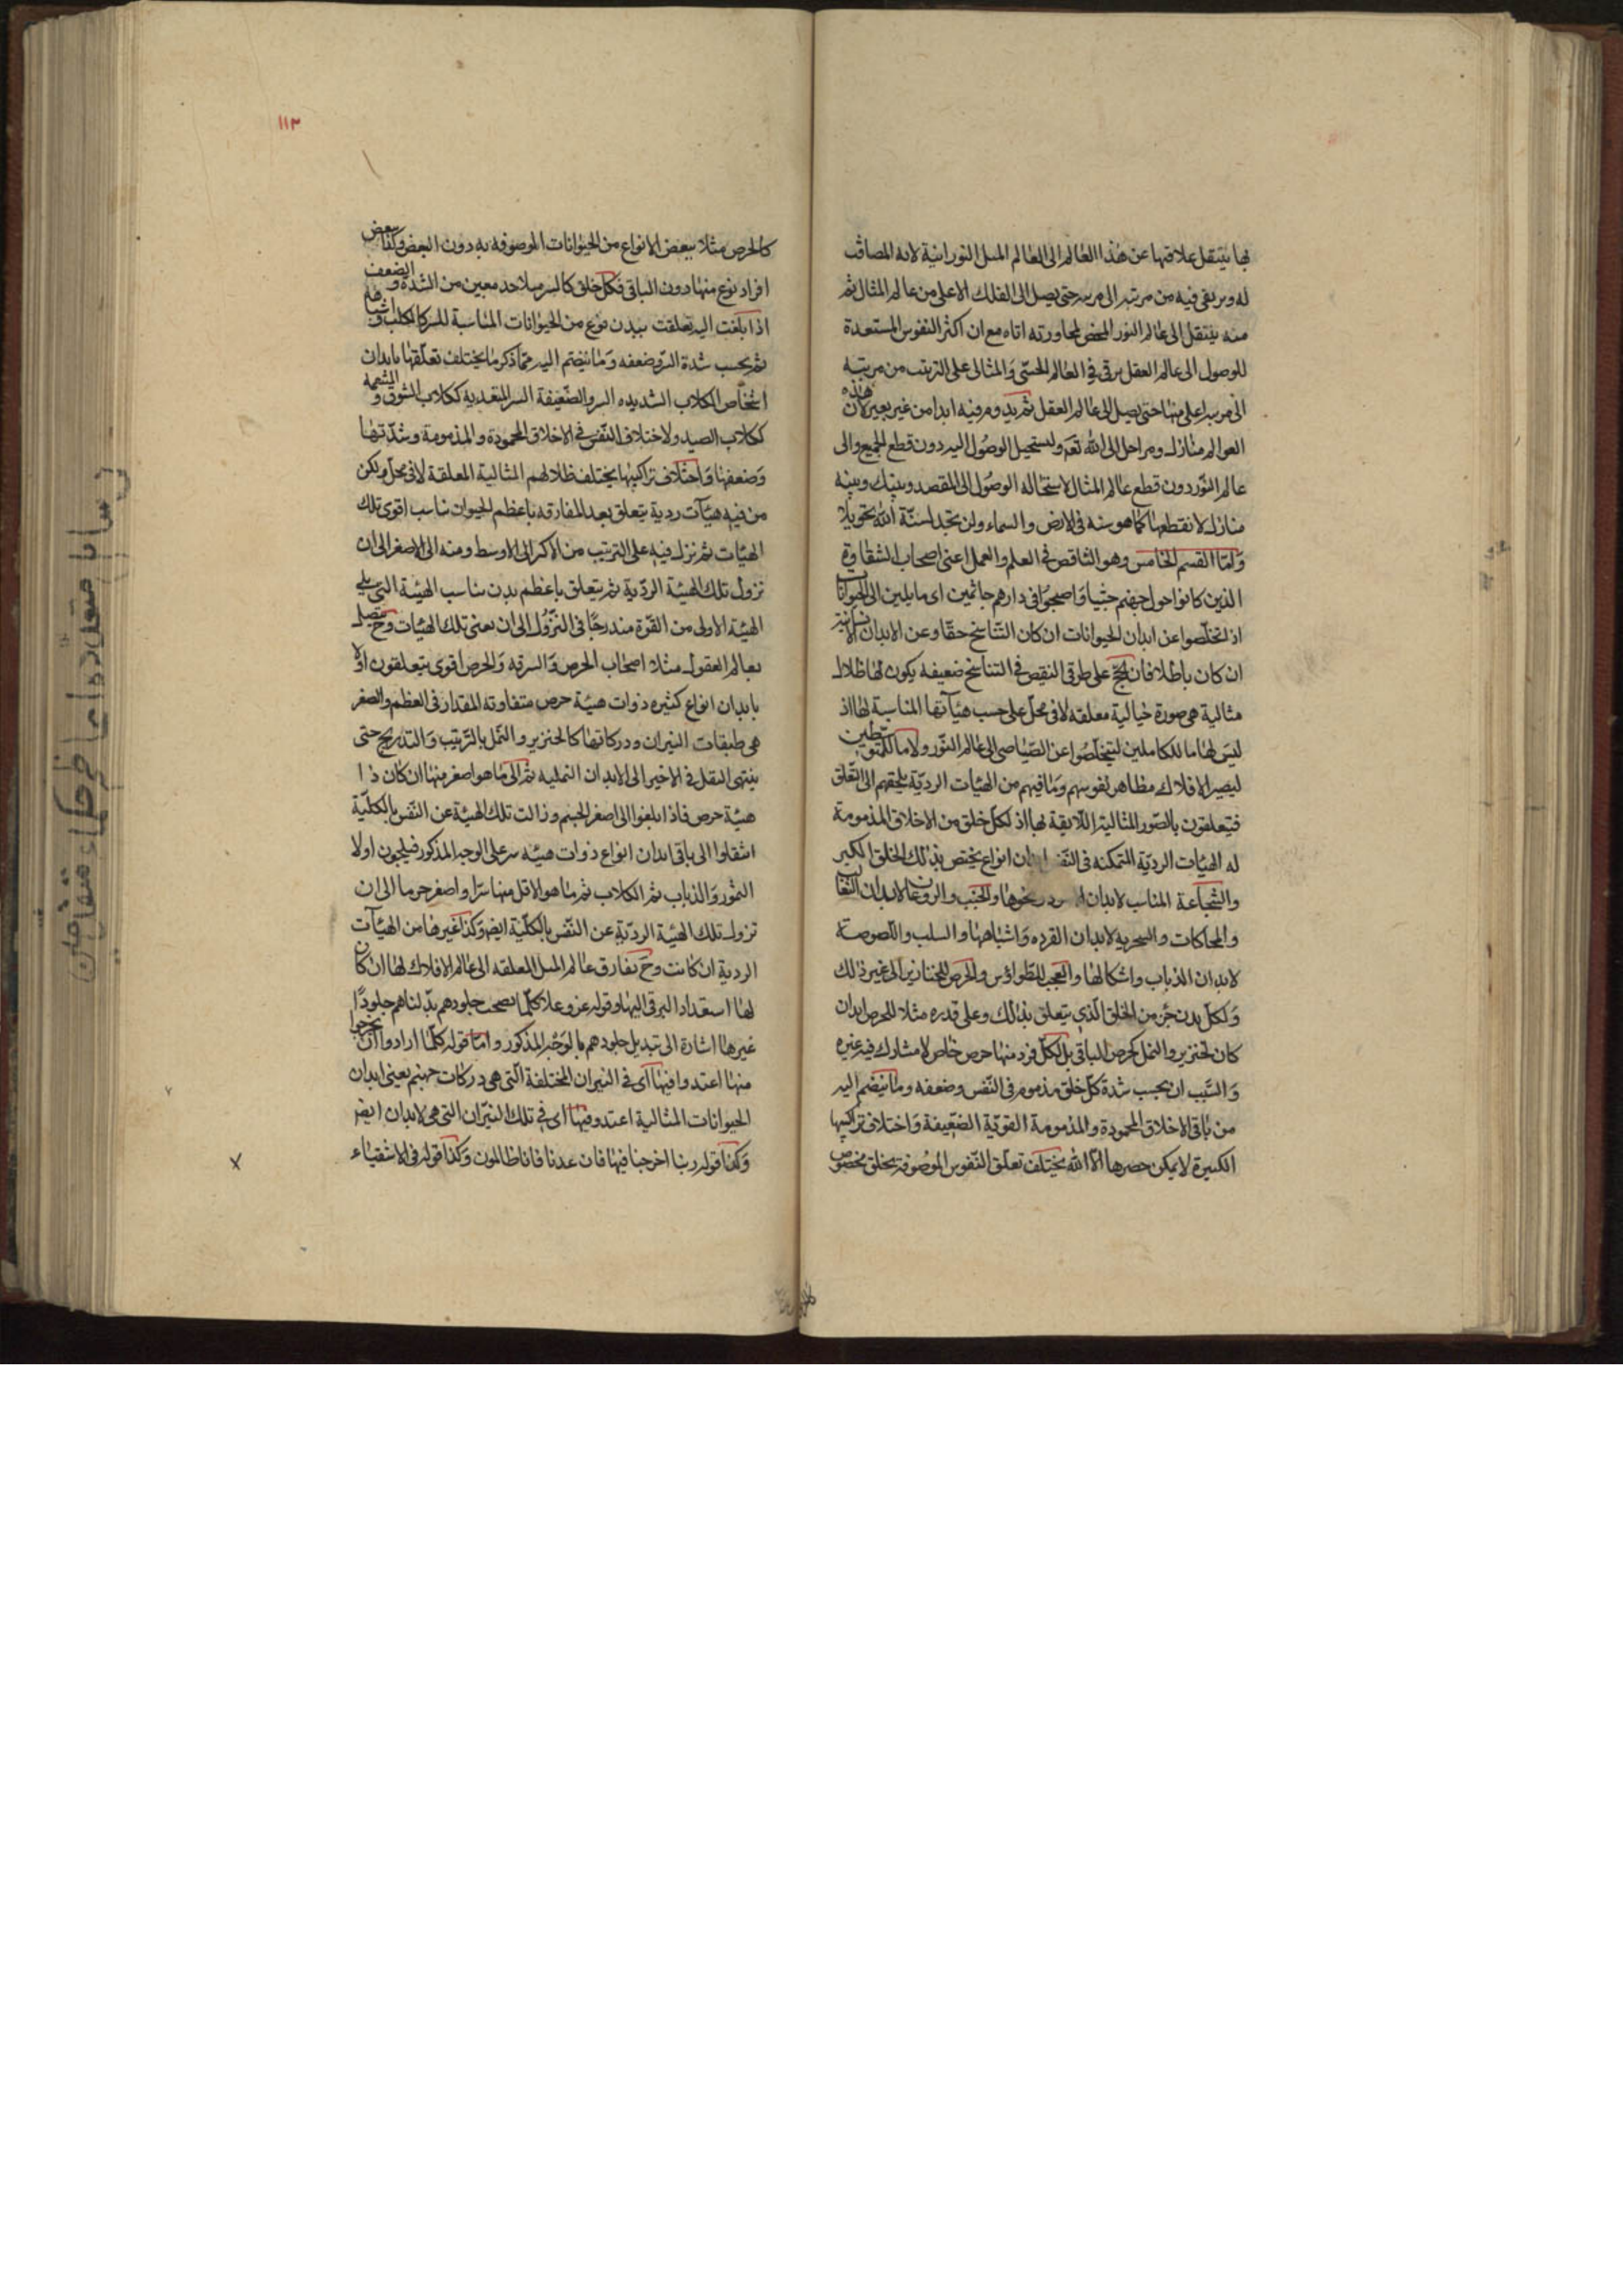 بها ينتقل علاقتها عن هذا العالم الى العالم المثل النورانية لانه المصاقب
له ويرتقى فيه من مرتبه الى مرتبه حتى يصل الى الفلك الاعلى من عالم المثال ثم
منه ينتقل الى عالم النور المحض لمجاورته اتاه مع ان اكثر النفوس المستعدة
للوصول الى عالم العقل يرقى فى العالم الحسّى والمثالى على الترتيب من مرتبه
الى مرتبه اعلى منها حتى يصل الى عالم العقل ثم يدوم فيه ابدا من غير تغير لان هذه
العوالم منازل ومراحل الى الله تعه ويستحيل الوصول اليه دون قطع الجميع والى
عالم النّور دون قطع عالم المثال لاستحاله الوصول الى المقصد وبينك وبينه
منازل لا تقطعها كما هو سنه فى الارض والسماء ولن تجد لسنّة الله تحويلا
وامّا القسم الخامس وهو الناقص فى العلم والعمل اعنى اصحاب الشقاوة
الذين كانوا حول جهنم جثيا واصبحوا فى دارهم جاثمين اى مايلين الى الحيوانات
اذ تخلّصوا عن ابدان الحيوانات ان كان التناسخ حقّا وعن الابدان الانسانية
ان كان باطلا فان الحجج على طرفى النقيض فى التناسخ ضعيفه يكون لها ظلال
مثالية هى صورة خيالية معلقه لا فى محلّ على حسب هيآتها المناسبة لها اذ
ليس لها ما للكاملين ليتخلّصوا عن الصّياصى الى عالم النّور ولا ما للمتوسّطين
ليصير الافلاك مظاهر نفوسهم وما فيهم من الهيئات الرديّة يلجئهم الى التعلق
فيتعلقون بالصّور المثالية اللّايقة بها اذ لكلّ خلق من الاخلاق المذمومة
له الهيئات الرديّة المتمكنه فى النّفس ابدان انواع يختص بذلك الخلق الكبر
والشّجاعة المناسب لابدان الاسود ونحوها والخبث والروغان لابدان الثعالب
والمحاكات والسخريه لابدان القرده واشباهها والسلب واللصوصة
لابدان الذباب واشكالها والعجب للطّواؤس والحرص للخنازير الى غير ذلك
ولكلّ بدن جزء من الخلق الّذى يتعلق بذلك وعلى قدره مثلا للحرص ابدان
كان لخنزير والنمل كحرص للباقى بل لكلّ فرد منها حرص خاص لا مشارك فيه غيره
والسّبب ان بحسب شدة كلّ خلق مذموم فى النّفس وضعفه وما ينضم اليه
من باقى الاخلاق المحمودة والمذمومة القويّة الضعيفة واختلاف تراكيبها
الكثيرة لا يمكن حصرها الّا الله يختلف تعلق النّفوس الموصوفة بخلق مخصوص
١١٣
كالحرص مثلا ببعض الانواع من الحيوانات الموصوفه به دون البعض وكذا ببعض
افراد نوع منها دون الباقى فكل خلق كالسر مثلا حد معين من الشدّة والضعف
اذا بلغت اليه تعلقت ببدن نوع من الحيوانات المناسبة للسر كالكلب واشباهه
ثم بحسب شدة السر وضعفه وما ينضم اليه ممّا ذكر ما يختلف تعلّقها بابدان
اشخاص الكلاب الشديده السر والضّعيفة السر المتعديه ككلاب السّوق والمتنعمه
ككلاب الصيد ولاختلاف النّفس فى الاخلاق المحمودة والمذمومة وشدّتها
وضعفها واختلاف تراكيبها يختلف ظلالهم المثالية المعلقة لا فى محلّ ويكن
من فيه هيئات ردية يتعلق بعد المفارقه باعظم الحيوان ناسب اقوى تلك
الهيئات ثم نزل فيه على الترتيب من الاكبر الى الاوسط ومنه الى الاصغر الى ان
تزول تلك الهيئة الرّدية ثم يتعلق باعظم بدن ناسب الهيئة التى يلى
الهيئة الاولى من القوّة مندرجّا فى النّزول الى ان يفنى تلك الهيئات وح يتصل
بعالم العقول مثلا اصحاب الحرص والسرقه والحرص اقوى يتعلقون اولا
بابدان انواع كثيره ذوات هيئة حرص متفاوته المقدار فى العظم والصغر
هى طبقات النيران ودركاتها كالخنزير والنمل بالترتيب والتدريج حتى
ينتهى النقل فى الاخير الى الابدان النمليه ثم الى ما هو اصغر منها ان كان ذا
هيئة حرص فاذا بلغوا الى اصغر الجسم وزالت تلك الهيئة عن النّفس بالكليّة
انتقلوا الى باقى ابدان انواع ذوات هيئه سر على الوجه المذكور فيلجون اولا
النمور والذباب ثم الكلاب ثم ما هو الاقل منها سرّا واصغر جرما الى ان
تزول تلك الهيئة الرديّة عن النّفس بالكليّة ايض وكذا غيرها من الهيئآت
الردية ان كانت وح يفارق عالم المثل المعلقه الى عالم الافلاك لها ان كان
لها استعداد الترقى اليها وقوله عز وعلا كلّما نضجت جلودهم بدّلناهم جلودًا
غيرها اشارة الى تبديل جلودهم بالوجه المذكور وامّا قوله كلّما ارادوا ان يخرجوا
منها اعيدوا فيها اى فى النيران المختلفة الّتى هى دركات جهنم يعنى ابدان
الحيوانات المثالية اعيدوا فيها اى فى تلك النيّران التى هى لابدان ايض
وكذا قوله ربنا اخرجنا فيها فان عدنا فانا ظالمون وكذا قوله فى الاشقياء